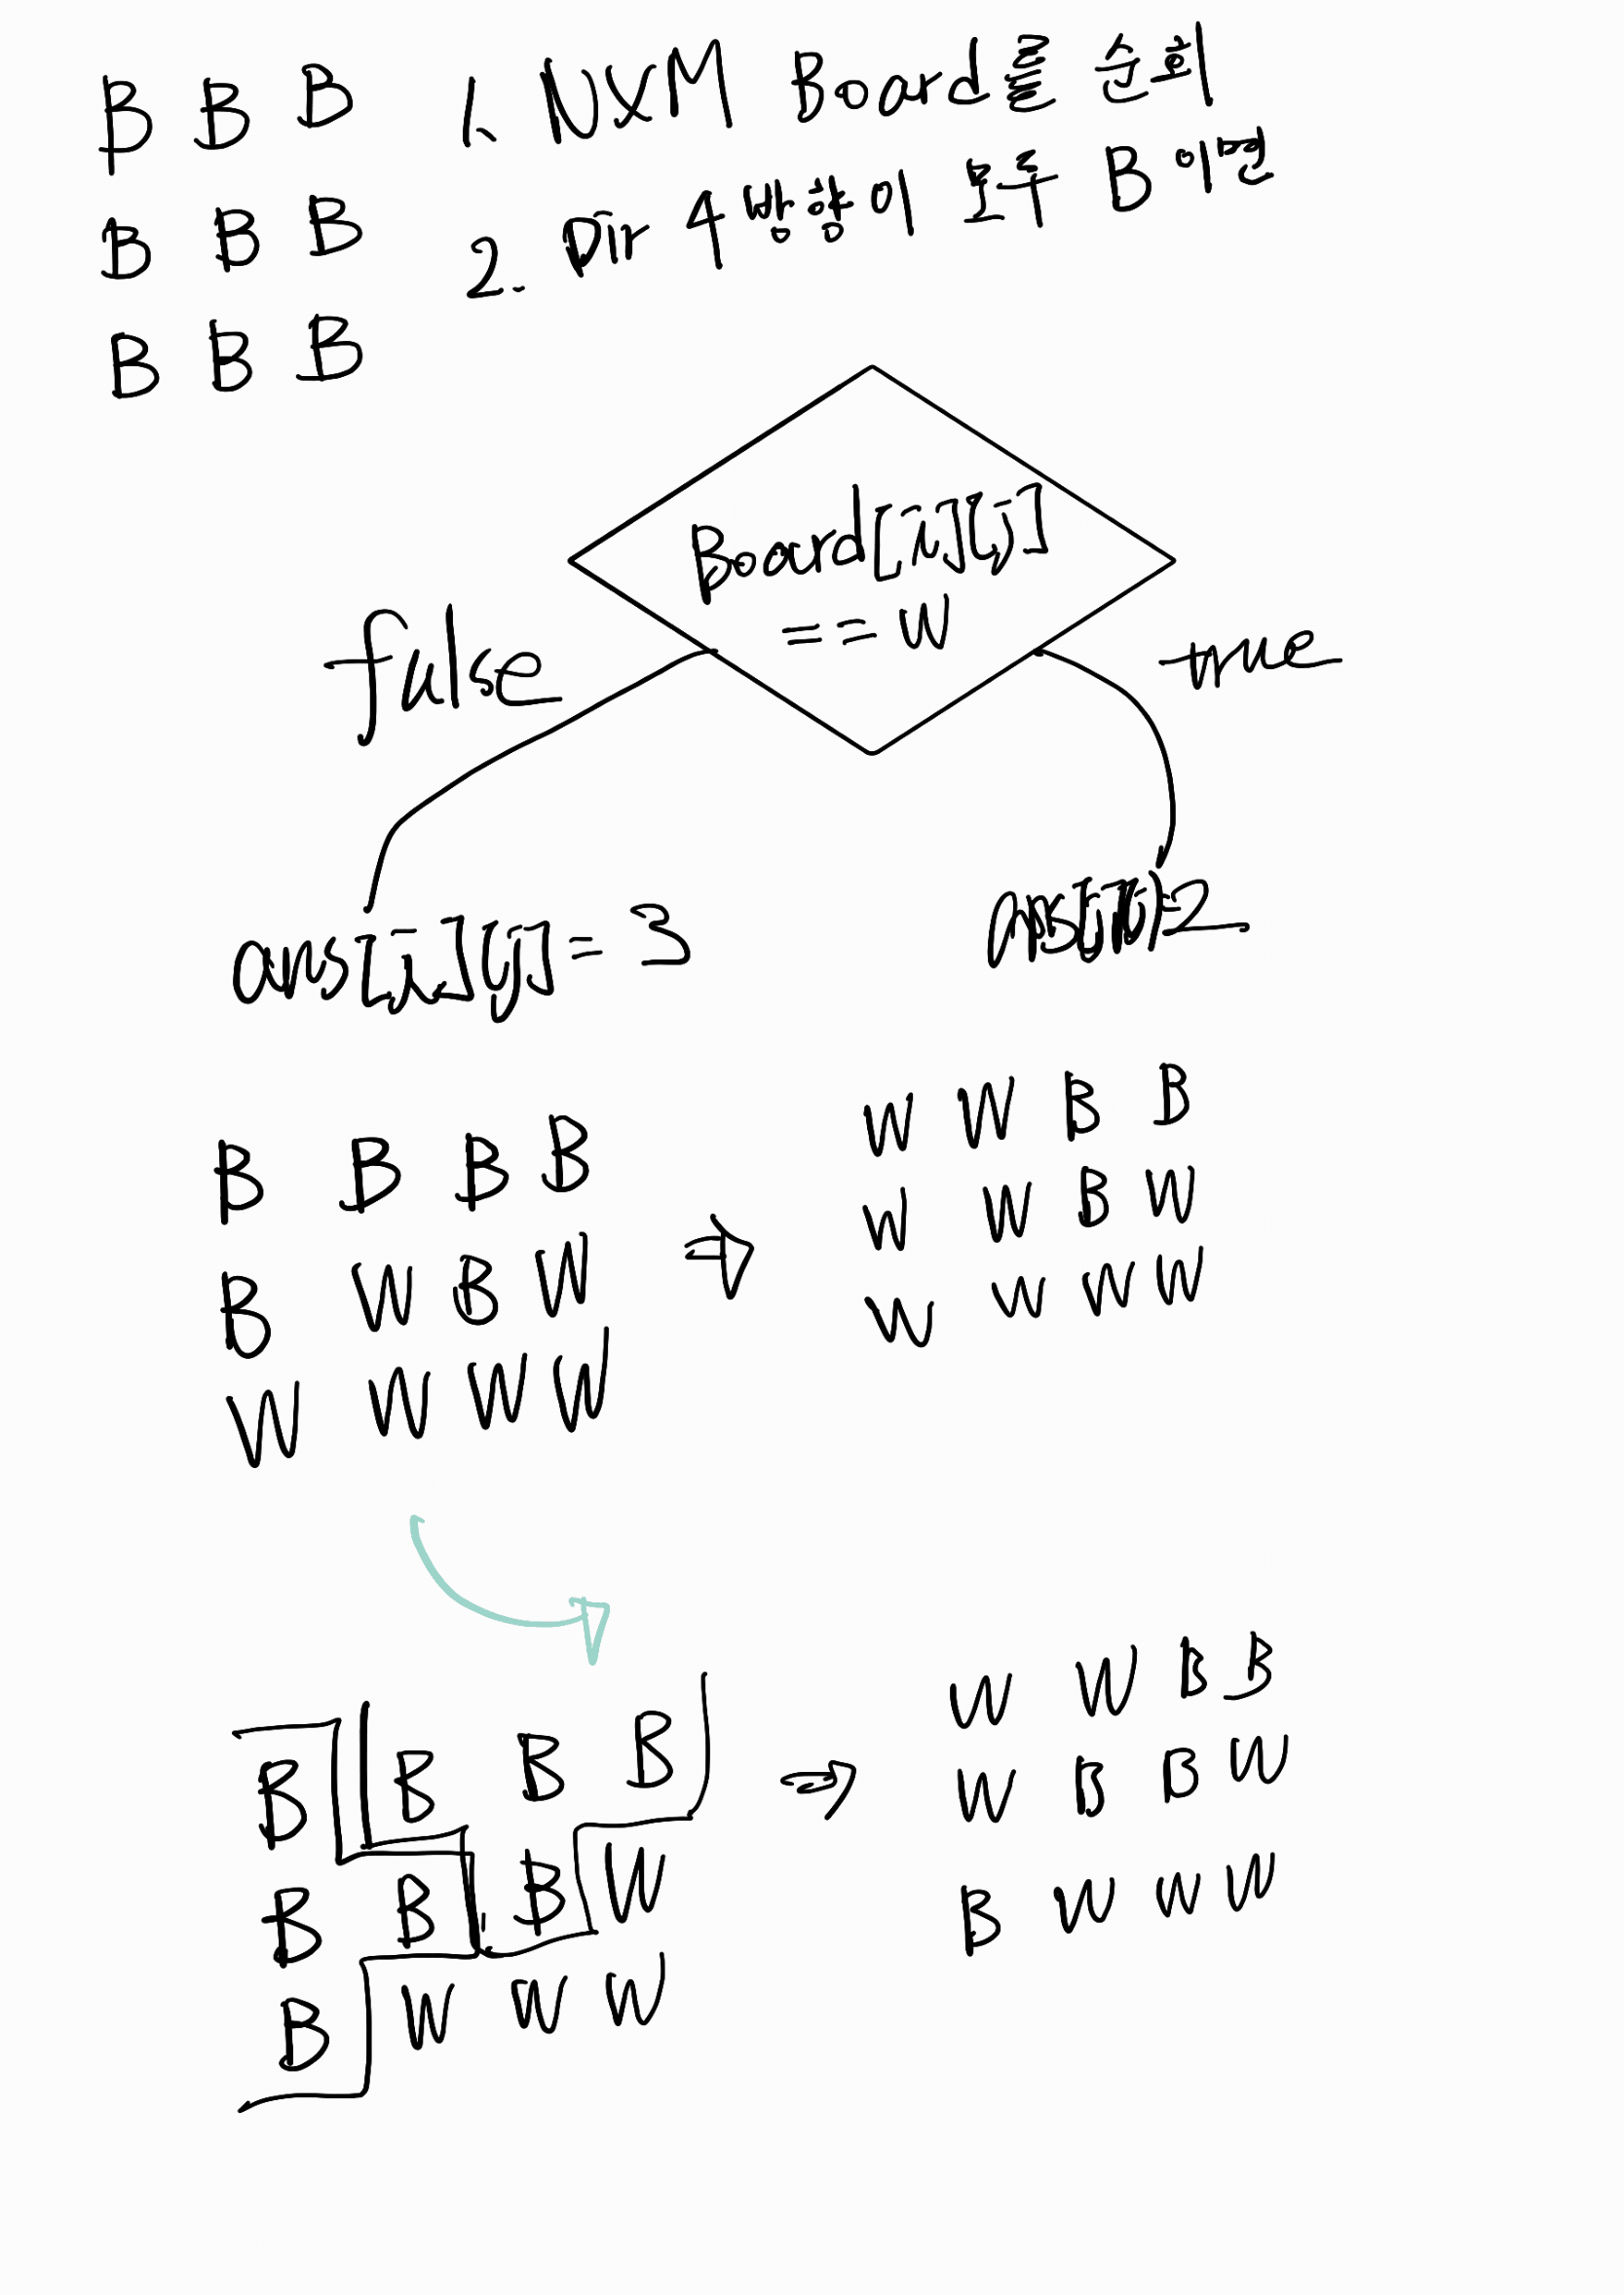 B B B
B B B
B B B
1. NXM Board를 순회
2. Dir 4방향이 모두 B이면
Board[i][j]
==W
false
true
ans[i][j]=3
ans[i][j]=2
B B B B
B W B W
W W W W
W W B B
W W B W
W W W W
B B B B
B B B W
B W W W
W W B B
W B B W
B W W W